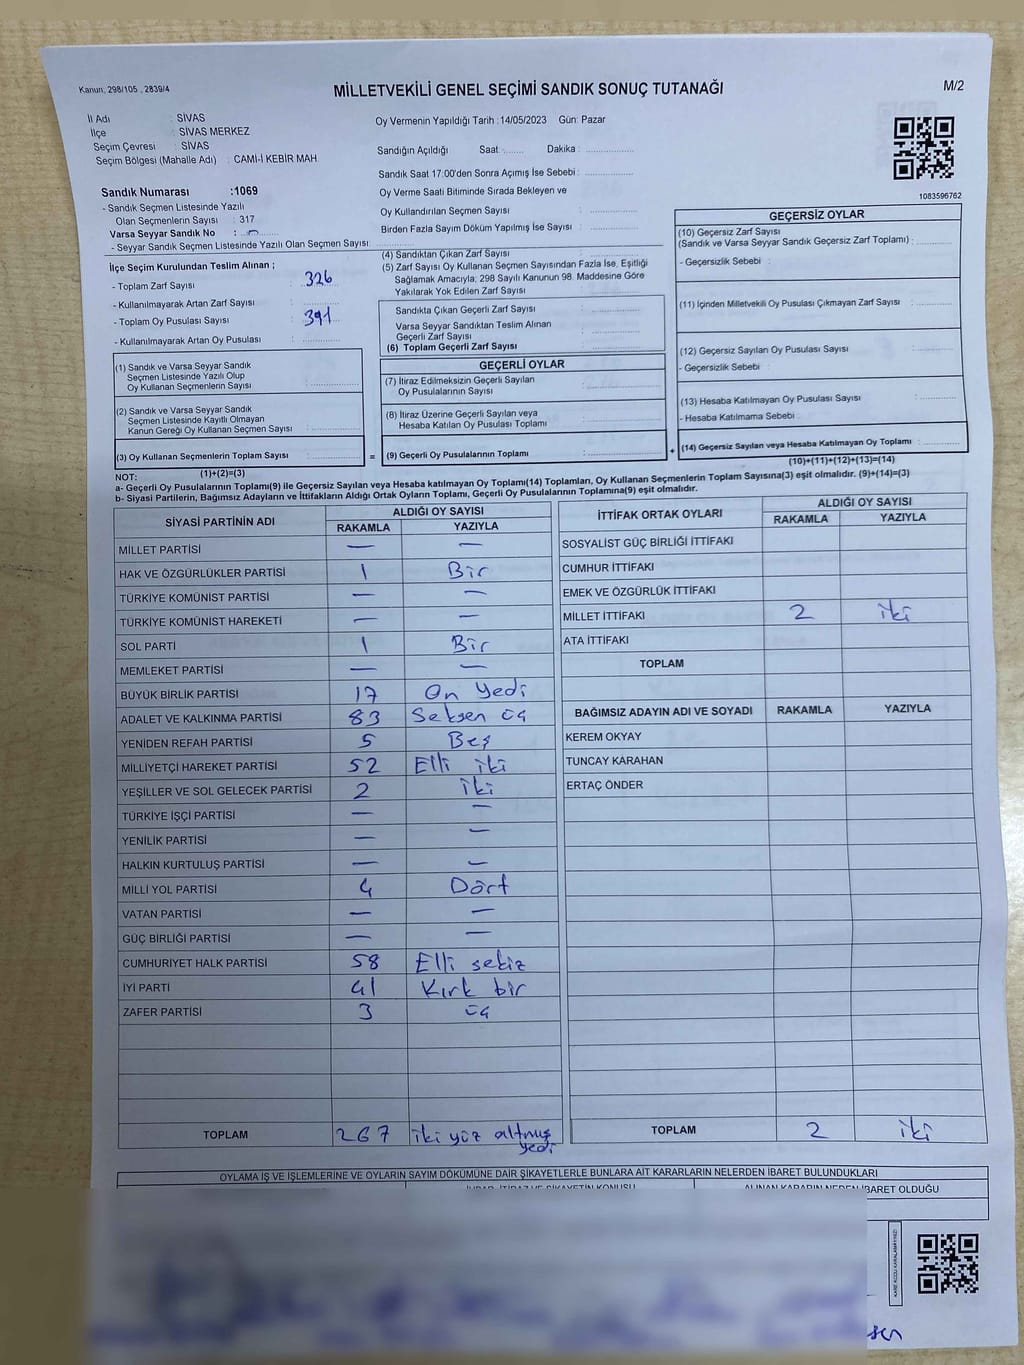 Kanun, 298/105 , 2839/4
MİLLETVEKİLİ GENEL SEÇİMİ SANDIK SONUÇ TUTANAĞI
M/2
İl Adı : SİVAS
İlçe : SİVAS MERKEZ
Seçim Çevresi : SİVAS
Seçim Bölgesi (Mahalle Adı) : CAMİ-İ KEBİR MAH.
Sandık Numarası :1069
- Sandık Seçmen Listesinde Yazılı
Olan Seçmenlerin Sayısı : 317
Varsa Seyyar Sandık No :
- Seyyar Sandık Seçmen Listesinde Yazılı Olan Seçmen Sayısı
Oy Vermenin Yapıldığı Tarih :14/05/2023 Gün: Pazar
Sandığın Açıldığı Saat:....... Dakika : ................
Sandık Saat 17:00'den Sonra Açımış İse Sebebi : ................
Oy Verme Saati Bitiminde Sırada Bekleyen ve
Oy Kullandırılan Seçmen Sayısı : ................
Birden Fazla Sayım Döküm Yapılmış İse Sayısı : ................
1083596762
İlçe Seçim Kurulundan Teslim Alınan ;
- Toplam Zarf Sayısı : 326
- Kullanılmayarak Artan Zarf Sayısı :
- Toplam Oy Pusulası Sayısı : 391
- Kullanılmayarak Artan Oy Pusulası :
(1) Sandık ve Varsa Seyyar Sandık
Seçmen Listesinde Yazılı Olup
Oy Kullanan Seçmenlerin Sayısı :
(2) Sandık ve Varsa Seyyar Sandık
Seçmen Listesinde Kayıtlı Olmayan
Kanun Gereği Oy Kullanan Seçmen Sayısı :
(3) Oy Kullanan Seçmenlerin Toplam Sayısı :
(1)+(2)=(3)
(4) Sandıktan Çıkan Zarf Sayısı :
(5) Zarf Sayısı Oy Kullanan Seçmen Sayısından Fazla İse, Eşitliği
Sağlamak Amacıyla; 298 Sayılı Kanunun 98. Maddesine Göre
Yakılarak Yok Edilen Zarf Sayısı :
Sandıkta Çıkan Geçerli Zarf Sayısı :
Varsa Seyyar Sandıktan Teslim Alınan
Geçerli Zarf Sayısı :
(6) Toplam Geçerli Zarf Sayısı :
GEÇERLİ OYLAR
(7) İtiraz Edilmeksizin Geçerli Sayılan
Oy Pusulalarının Sayısı :
(8) İtiraz Üzerine Geçerli Sayılan veya
Hesaba Katılan Oy Pusulası Toplamı :
= (9) Geçerli Oy Pusulalarının Toplamı :
GEÇERSİZ OYLAR
(10) Geçersiz Zarf Sayısı
(Sandık ve Varsa Seyyar Sandık Geçersiz Zarf Toplamı) :
- Geçersizlik Sebebi :
(11) İçinden Milletvekili Oy Pusulası Çıkmayan Zarf Sayısı :
(12) Geçersiz Sayılan Oy Pusulası Sayısı :
- Geçersizlik Sebebi :
(13) Hesaba Katılmayan Oy Pusulası Sayısı :
- Hesaba Katılmama Sebebi :
+ (14) Geçersiz Sayılan veya Hesaba Katılmayan Oy Toplamı :
(10)+(11)+(12)+(13)=(14)
NOT:
a- Geçerli Oy Pusulalarının Toplamı(9) ile Geçersiz Sayılan veya Hesaba katılmayan Oy Toplamı(14) Toplamları, Oy Kullanan Seçmenlerin Toplam Sayısına(3) eşit olmalıdır. (9)+(14)=(3)
b- Siyasi Partilerin, Bağımsız Adayların ve İttifakların Aldığı Ortak Oyların Toplamı, Geçerli Oy Pusulalarının Toplamına(9) eşit olmalıdır.
SİYASİ PARTİNİN ADI ALDIĞI OY SAYISI
RAKAMLA YAZIYLA
MİLLET PARTİSİ — —
HAK VE ÖZGÜRLÜKLER PARTİSİ 1 Bir
TÜRKİYE KOMÜNİST PARTİSİ — —
TÜRKİYE KOMÜNİST HAREKETİ — —
SOL PARTİ 1 Bir
MEMLEKET PARTİSİ — —
BÜYÜK BİRLİK PARTİSİ 17 On yedi
ADALET VE KALKINMA PARTİSİ 83 Seksen üç
YENİDEN REFAH PARTİSİ 5 Beş
MİLLİYETÇİ HAREKET PARTİSİ 52 Elli iki
YEŞİLLER VE SOL GELECEK PARTİSİ 2 iki
TÜRKİYE İŞÇİ PARTİSİ — —
YENİLİK PARTİSİ — —
HALKIN KURTULUŞ PARTİSİ — —
MİLLİ YOL PARTİSİ 4 Dört
VATAN PARTİSİ — —
GÜÇ BİRLİĞİ PARTİSİ — —
CUMHURİYET HALK PARTİSİ 58 Elli sekiz
İYİ PARTİ 41 Kırk bir
ZAFER PARTİSİ 3 üç
TOPLAM 267 iki yüz altmış
yedi
İTTİFAK ORTAK OYLARI ALDIĞI OY SAYISI
RAKAMLA YAZIYLA
SOSYALİST GÜÇ BİRLİĞİ İTTİFAKI
CUMHUR İTTİFAKI
EMEK VE ÖZGÜRLÜK İTTİFAKI
MİLLET İTTİFAKI 2 iki
ATA İTTİFAKI
TOPLAM
BAĞIMSIZ ADAYIN ADI VE SOYADI RAKAMLA YAZIYLA
KEREM OKYAY
TUNCAY KARAHAN
ERTAÇ ÖNDER
TOPLAM 2 iki
OYLAMA İŞ VE İŞLEMLERİNE VE OYLARIN SAYIM DÖKÜMÜNE DAİR ŞİKAYETLERLE BUNLARA AİT KARARLARIN NELERDEN İBARET BULUNDUKLARI
İHBAR, İTİRAZ VE ŞİKAYETİN KONUSU ALINAN KARARIN NEDEN İBARET OLDUĞU